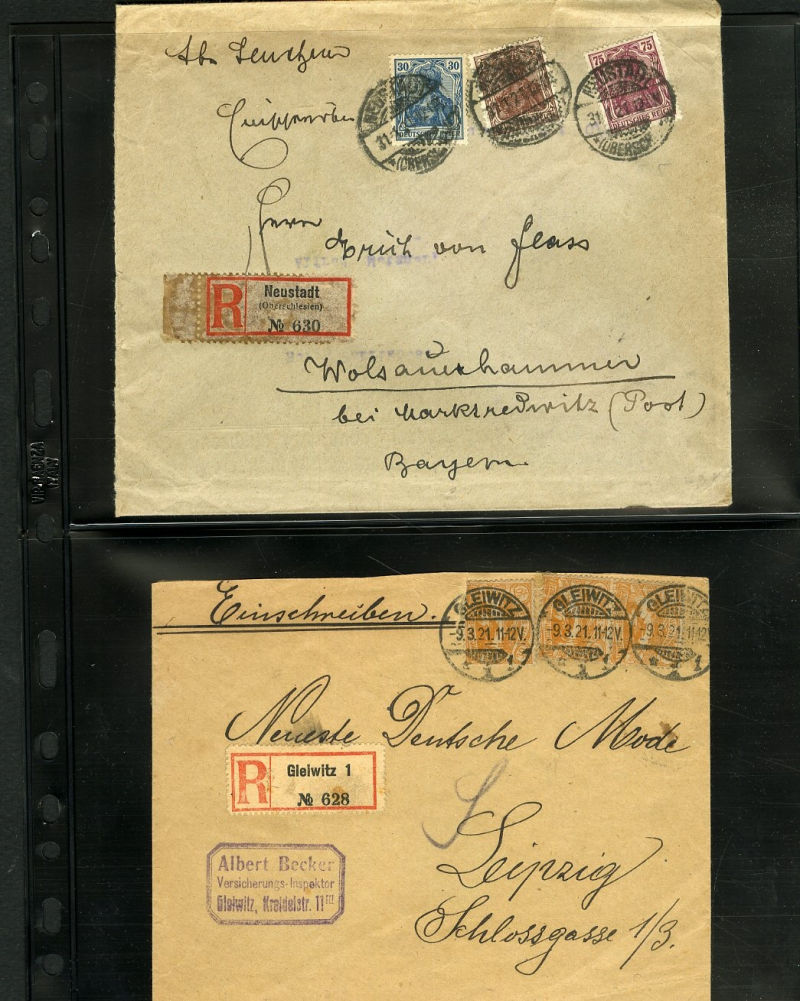 30 30
75 75
DEUTSCHES REICH
NEUSTADT
(OBERSCHL.)
31
Einschreiben
Herrn
Erich von Glass
R Neustadt
(Oberschlesien)
№ 630
Wolsauerhammer
bei Marktredwitz (Post)
Bayern
Einschreiben.
GLEIWITZ GLEIWITZ GLEIWITZ
-9.3.21.11-12V. -9.3.21.11-12V. -9.3.21.11-12V.
* 1 1 * 1 1 * 1 1
Neueste Deutsche Mode
R Gleiwitz 1
№ 628
Leipzig
Schlossgasse 1/3.
Albert Becker
Versicherungs-Inspektor
Gleiwitz, Kreidelstr. 11 III